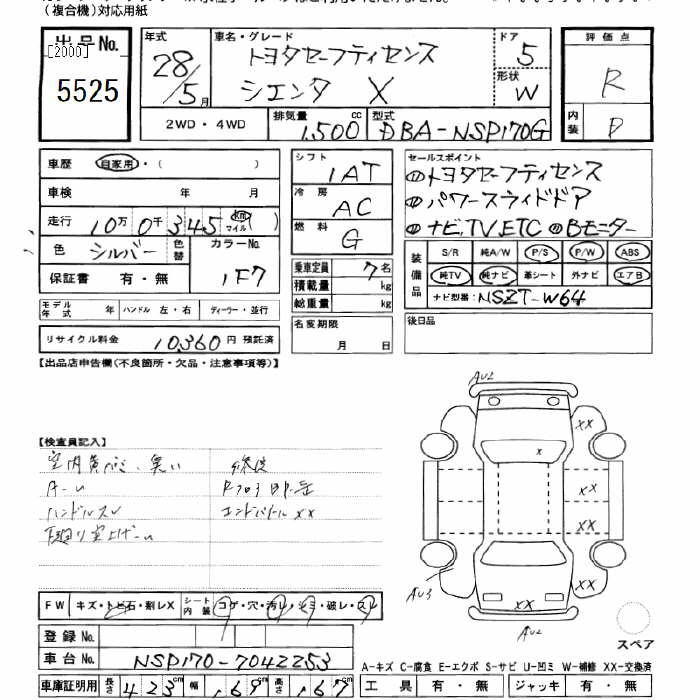 (複合機)対応用紙
出品No.
[2000]
5525
年式
28/5月
車名・グレード
トヨタセーフティセンス
シエンタ X
ドア
5
形状
W
評価点
R
内装
D
2WD・4WD
排気量
1,500cc
型式
DBA-NSP170G
車歴 自家用・( )
車検 年 月
走行 10万0千345 km マイル( )
色 シルバー 色替
カラーNo.
1F7
保証書 有・無
シフト
1AT
冷房
AC
燃料
G
乗車定員 7名
積載量 kg
総重量 kg
セールスポイント
①トヨタセーフティセンス
②パワースライドドア
③ナビ,TV,ETC ④Bモニター
装備品
S/R 純A/W P/S P/W ABS
純TV 純ナビ 革シート 外ナビ エアB
ナビ型番: NSZT-W64
モデル年式 年 ハンドル 左・右 ディーラー・並行
リサイクル料金 10,360円 預託済
名変期限
月 日
後日品
【出品店申告欄(不良箇所・欠品・注意事項等)】
【検査員記入】
室内 臭い
修復
ハンドルスレ
エンドパネルXX
AU2
XX
X
XX
XX
XX
AU3
XX
AU2
スペア
FW キズ・トビ石・刺レX
シート内装 コゲ・穴・汚レ・シミ・破レ・スレ
登録No.
車台No. NSP170-7042253
車庫証明用 長さ 423cm 幅 169cm 高さ 167cm
A-キズ C-腐食 E-エクボ S-サビ U-凹ミ W-補修 XX-交換済
工具 有・無 ジャッキ 有・無